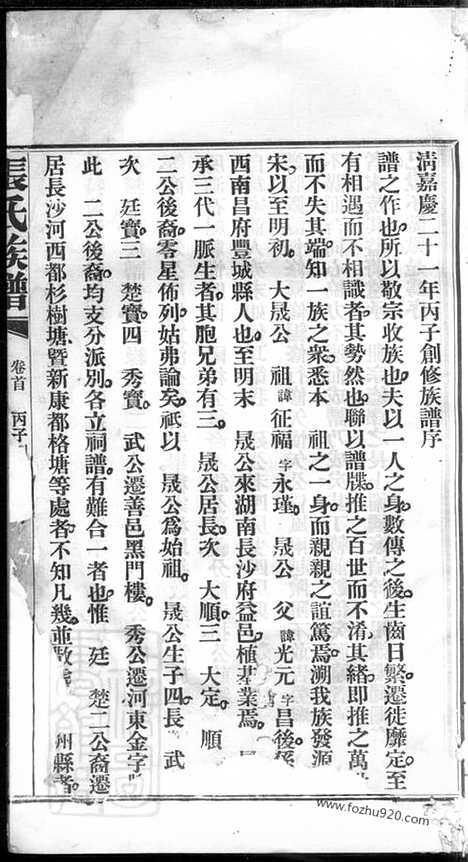 清嘉慶二十一年丙子創修族譜序
譜之作也所以敬宗收族也夫以一人之身數傳之後生齒日繁遷徙靡定至
有相遇而不相識者其勢然也聯以譜牒推之百世而不淆其緒即推之萬
而不失其端知一族之衆悉本 祖之一身而親親之誼篤焉溯我族發源
宋以至明初 大晟公 祖諱征福字永瑾 晟公 父諱光元字昌後
西南昌府豐城縣人也至明末 晟公來湖南長沙府益邑植基業焉
承三代一脈生者其胞兄弟有三 晟公居長次 大順三 大定 順
二公後裔零星佈列姑弗論矣祗以 晟公爲始祖 晟公生子四長 武
次 廷寶三 楚寶四 秀寶 武公遷善邑黑門樓 秀公遷河東金字
此 二公後裔均支分派別各立祠譜有難合一者也惟 廷 楚二公裔遷
居長沙河西都杉樹塘暨新康都格塘等處者不知凡幾並 州縣者
張氏族譜 卷首 丙子
www.fozhu920.com